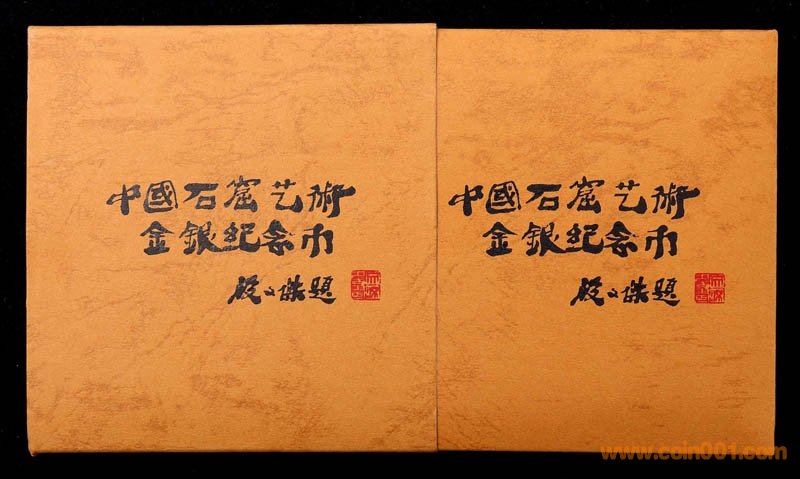 中國石窟艺術
金銀纪念币
段文傑題
中國石窟艺術
金銀纪念币
段文傑題
www.coin001.com